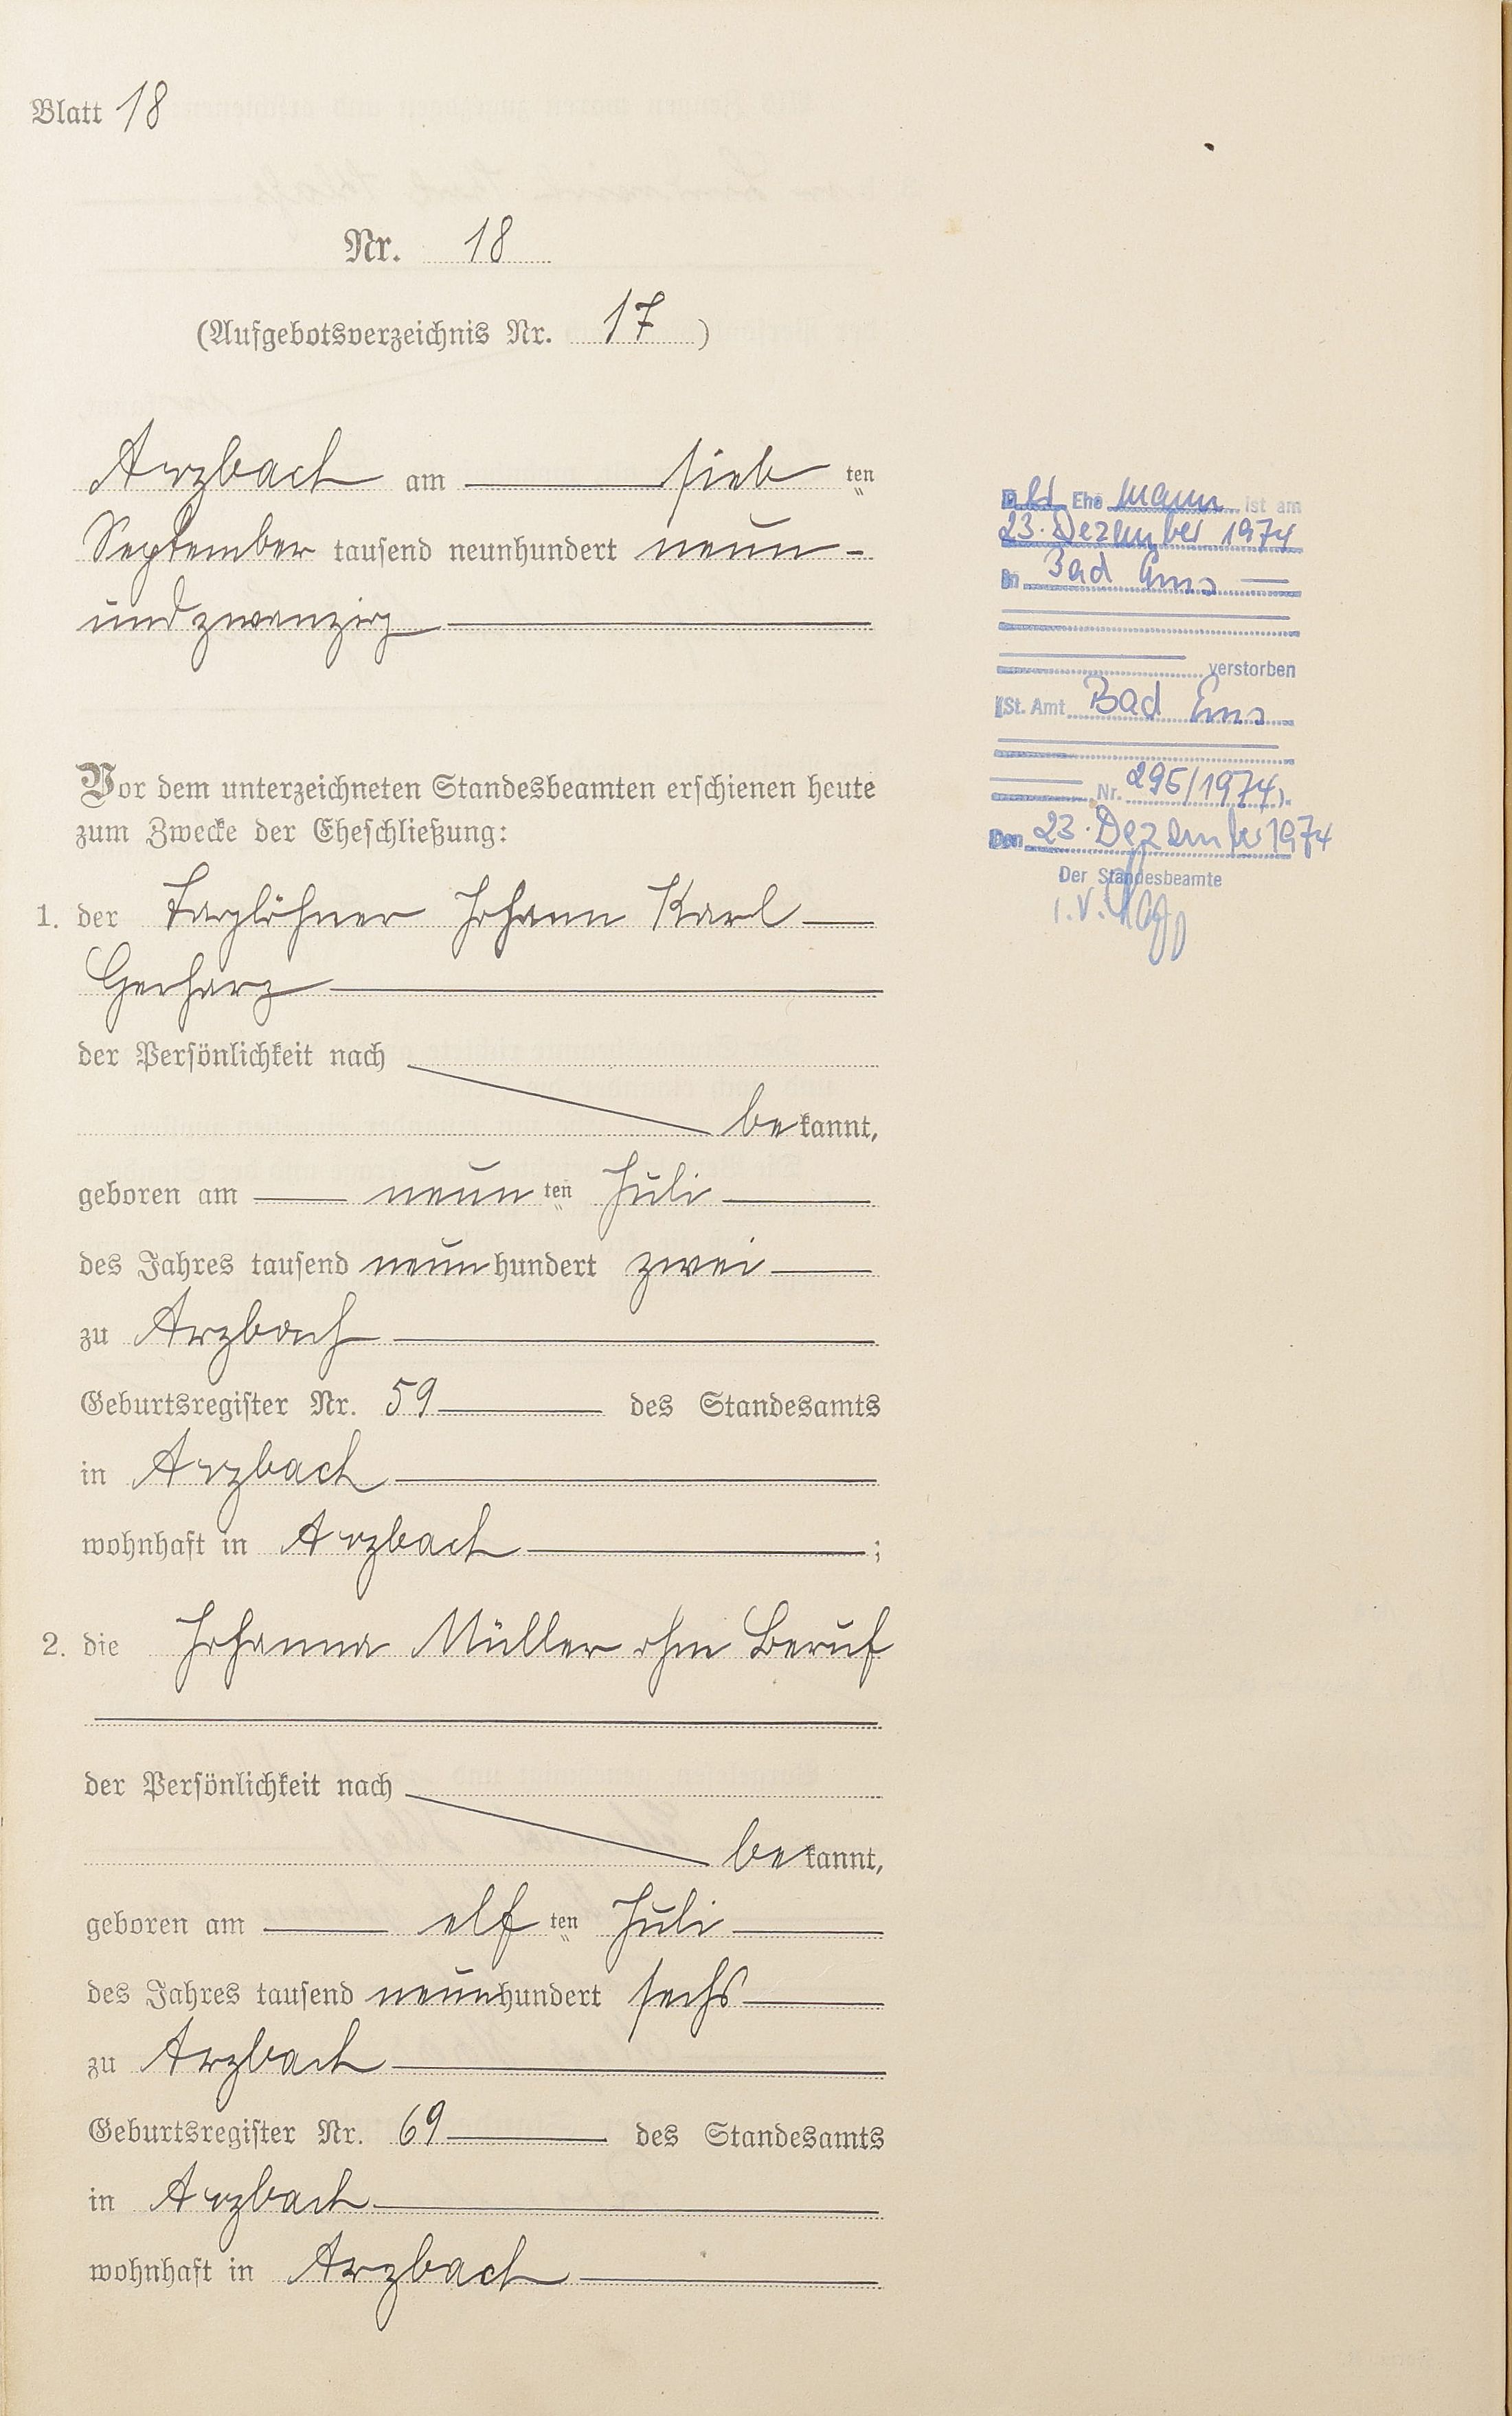 Blatt 18
Nr. 18
(Aufgebotsverzeichnis Nr. 17)
Arzbach am sieb ten
September tausend neunhundert neun-
undzwanzig
Vor dem unterzeichneten Standesbeamten erschienen heute
zum Zwecke der Eheschließung:
1. der Taglöhner Johann Karl
Gerharz
der Persönlichkeit nach
bekannt,
geboren am neun ten Juli
des Jahres tausend neunhundert zwei
zu Arzbach
Geburtsregister Nr. 59 des Standesamts
in Arzbach
wohnhaft in Arzbach;
2. die Johanna Müller ohne Beruf
der Persönlichkeit nach
bekannt,
geboren am elf ten Juli
des Jahres tausend neunhundert sechs
zu Arzbach
Geburtsregister Nr. 69 des Standesamts
in Arzbach
wohnhaft in Arzbach
Der Ehemann ist am
23. Dezember 1974
in Bad Ems
verstorben
(St. Amt Bad Ems
Nr. 295/1974).
Den 23. Dezember 1974
Der Standesbeamte
i.V.